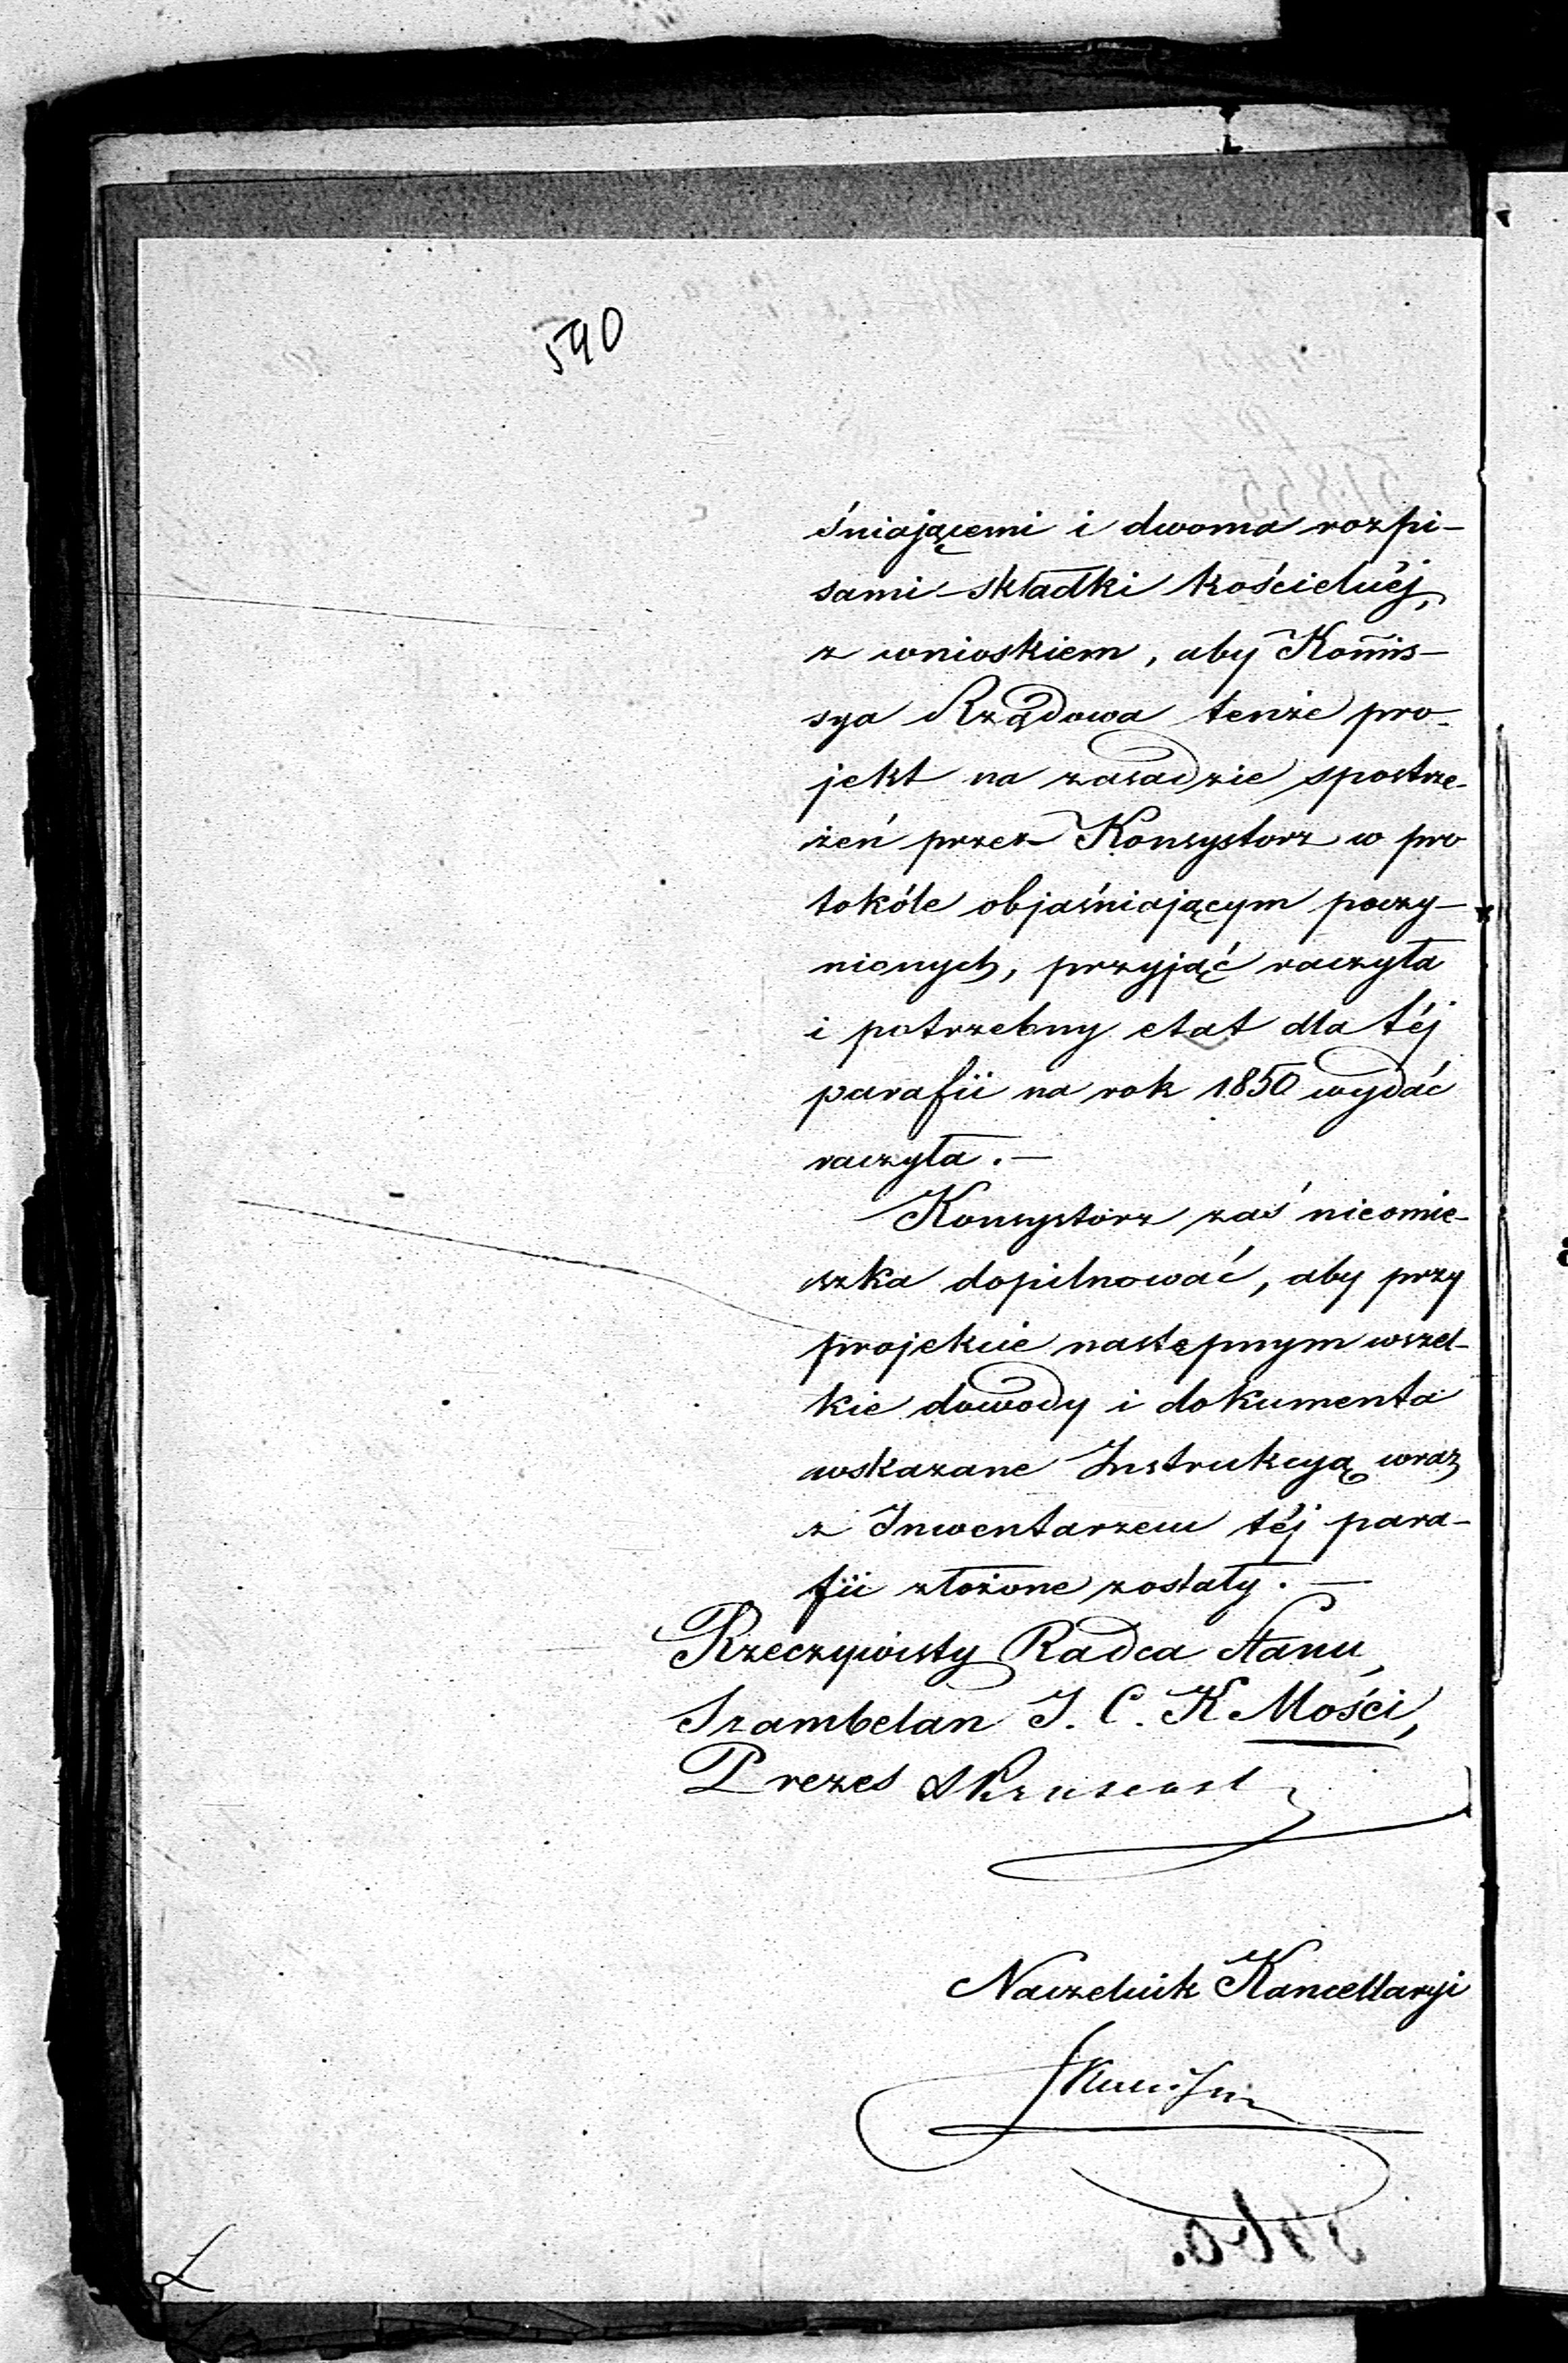 540
śniającemi i dwoma rozpi-
sami składki kościelnéj,
z wnioskiem, aby Kom̄is-
sya Rządowa tenże pro-
jekt na zasadzie spostrze-
żeń przez Konsystorz w pro
tokóle objaśniającym poczy-
nionych, przyjąć raczyła
i potrzebny etat dla téj
parafii na rok 1850 wydać
raczyła.—
Konsystorz zaś nieomie-
szka dopilnować, aby przy
projekcie następnym wszel-
kie dowody i dokumenta
wskazane Instrukcyą wraz
z Inwentarzem téj para-
fii złożone zostały.—
Rzeczywisty Radca Stanu,
Szambelan J. C. K Mości,
Prezes
Naczelnik Kancellaryi